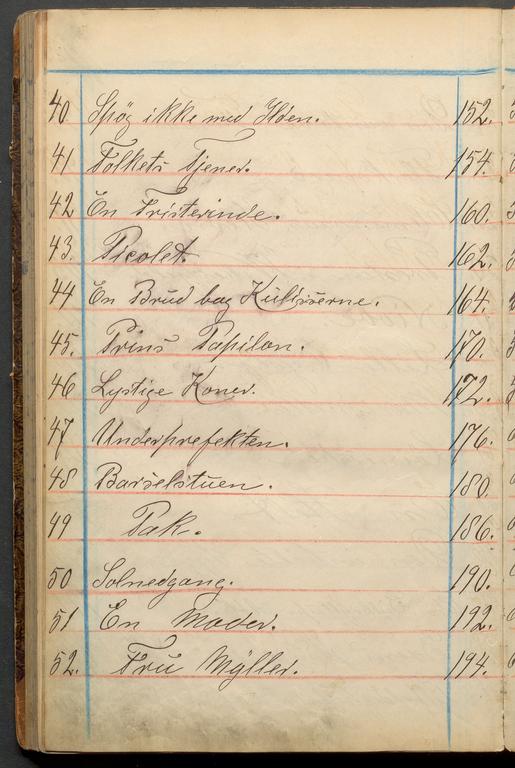 40 Spøg ikke med Ilden. 152.
41 Folkets Tjener. 154.
42 En Fristerinde. 160.
43. Picolet. 162.
44 En Brud bag Kulisserne. 164.
45. Prins Papilon. 170.
46 Lystige Koner. 172.
47 Underprefekten. 176.
48 Barselstuen. 180.
49 Pak. 186.
50 Solnedgang. 190.
51 En Moder. 192.
52. Fru Mÿller. 194.